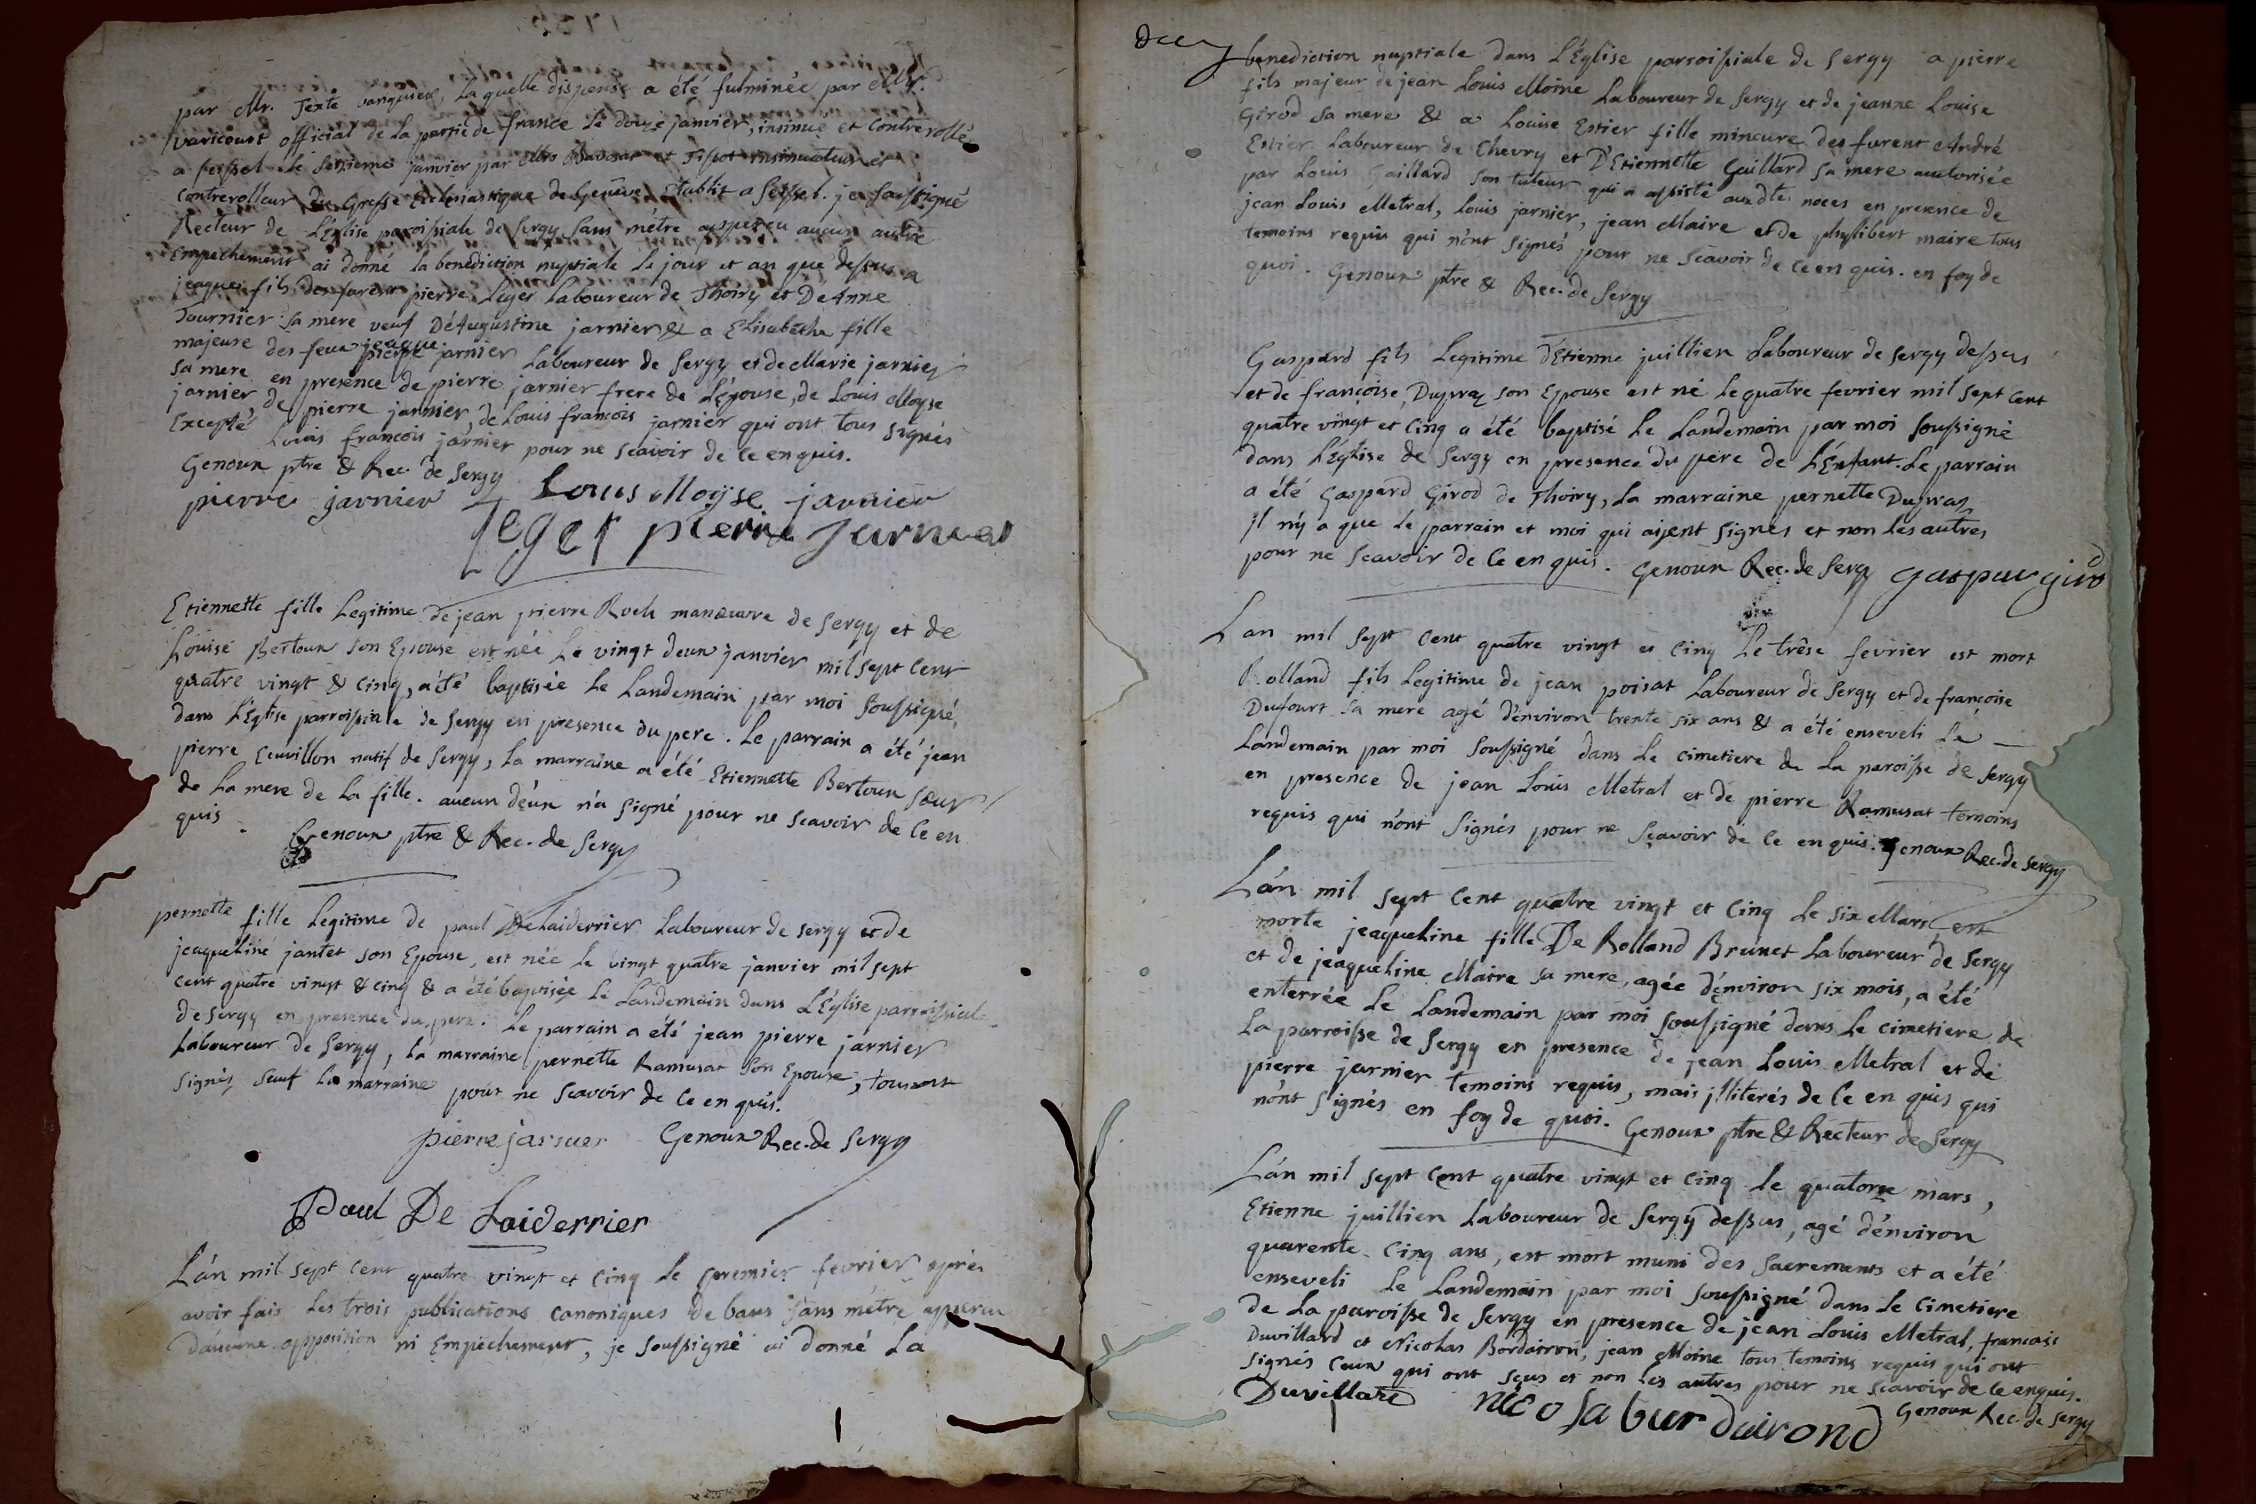 par Mr. Texte banquier, Laquelle dispense a été fulminée par Mr.
varicourt official de la partie de france le douze janvier, insinué et controrollé
a seissel le seizieme janvier par Mrs et Tissot insinuateur et
Controrolleur du Greffe Eclesiastique de Geneve Etablit a Seissel. je soussigné
Recteur de L'Eglise paroissiale de Sergy sans m'être apperçu aucun autre
Empechement ai donné la benediction nuptiale le jour et an que dessus a
jeaques fils des furent pierre Leger Laboureur de Thoiry et De Anne
Tournier sa mere veuf D'Augustine jarnier & a Elisabetha fille
majeure des feux jeaque jarnier Laboureur de Sergy et de Marie jarnier
sa mere en presence de pierre jarnier frere de L'épouse, de Louis Moyse
jarnier de pierre jarnier, de Louis francois jarnier qui ont tous signés
Excepté Louis francois jarnier pour ne scavoir de ce enquis.
Genoux ptre & Rec. de Sergy
pierre jarnier Louis Moÿse jarnier
leger pierre Jarnier
Etiennette fille Legitime de jean pierre Roch manœuvre de Sergy et de
Louise Bertoux son Epouse est née Le vingt deux janvier mil sept cent
quatre vingt & cinq, a été baptisée Le Landemain par moi soussigné,
dans L'Eglise parroissiale de Sergy en presence du pere. Le parrain a été jean
pierre Ceuvillon natif de Sergy, La marraine a été Etiennette Bertoux sœur
de La mere de La fille. aucun d'eux n'a signé pour ne scavoir de ce en
quis. Genoux ptre & Rec. de Sergy
pernette fille Legitime de paul De Laiderrier Laboureur de sergy et de
jeaqueline jantet son Epouse, est née Le vingt quatre janvier mil sept
cent quatre vingt & cinq & a été baptisée Le Landemain dans L'Eglise parroissiale
de Sergy en presence du pere. Le parrain a été jean pierre jarnier
Laboureur de Sergy, La marraine pernette Ramusat son Epouse, tous ont
signés sauf la marraine pour ne scavoir de ce en quis.
pierre jarnier Genoux Rec. de Sergy
Paul De Laiderrier
L'an mil sept cent quatre vingt et cinq le premier fevrier après
avoir fais Les trois publications canoniques de bans sans m'être apperçu
d'aucune opposition ni Empechement, je soussigné ai donné La
benediction nuptiale dans L'Eglise parroissiale de Sergy a pierre
fils majeur de jean Louis Moine Laboureur de Sergy et de jeanne Louise
Girod sa mere & a Louise Estier fille mineure des furent André
Estier Laboureur de Chevry et D'Etiennette Gaillard sa mere auctorisée
par Louis Gaillard son tuteur qui a assisté aux dtes noces en presence de
jean Louis Metral, Louis jarnier, jean Maire et de phylibert maire tous
temoins requis qui n'ont signés pour ne scavoir de ce en quis. en foy de
quoi. Genoux ptre & Rec. de Sergy
Gaspard fils Legitime d'Etienne juillien Laboureur de sergy dessus
et de françoise Dupraz son Epouse est né Le quatre fevrier mil sept cent
quatre vingt et cinq a été baptisé Le Landemain par moi soussigné
dans L'Eglise de Sergy en presence du pere de L'Enfant. Le parrain
a été Gaspard Girod de Thoiry, La marraine pernette Dupraz
il n'y a que Le parrain et moi qui aijent signés et non Les autres
pour ne scavoir de ce en quis. Genoux Rec. de Sergy gaspar giro
L'an mil sept cent quatre vingt et cinq Le trêse fevrier est mort
Rolland fils Legitime de jean poisat Laboureur de Sergy et de françoise
Dufourt sa mere agé d'environ trente six ans & a été enseveli Le
Landemain par moi soussigné dans Le cimetiere de La paroisse de Sergy
en presence de jean Louis Metral et de pierre Ramusat temoins
requis qui n'ont signés pour ne scavoir de ce en quis. Genoux Rec. de Sergy
L'an mil sept cent quatre vingt et cinq Le six Mars est
morte jeaqueline fille De Rolland Brunet Laboureur de Sergy
et de jeaqueline Maire sa mere, agée d'environ six mois, a été
enterrée Le Landemain par moi soussigné dans Le cimetiere de
La parroisse de Sergy en presence de jean Louis Metral et de
pierre jarnier temoins requis, mais illiterés de ce en quis qui
n'ont signés en foy de quoi. Genoux ptre & Recteur de Sergy
L'an mil sept cent quatre vingt et cinq Le quatorze mars,
Etienne juillien Laboureur de Sergy dessus, agé d'environ
quarente cinq ans, est mort muni des sacrements et a été
enseveli Le Landemain par moi soussigné dans Le cimetiere
de La paroisse de Sergy en presence de jean Louis Metral, francois
Duvillard et Nicolas Bordairon, jean Moine tous temoins requis qui ont
signés Ceux qui ont sçus et non Les autres pour ne scavoir de ce enquis.
Duvillard nicolabur dairond Genoux Rec. de Sergy